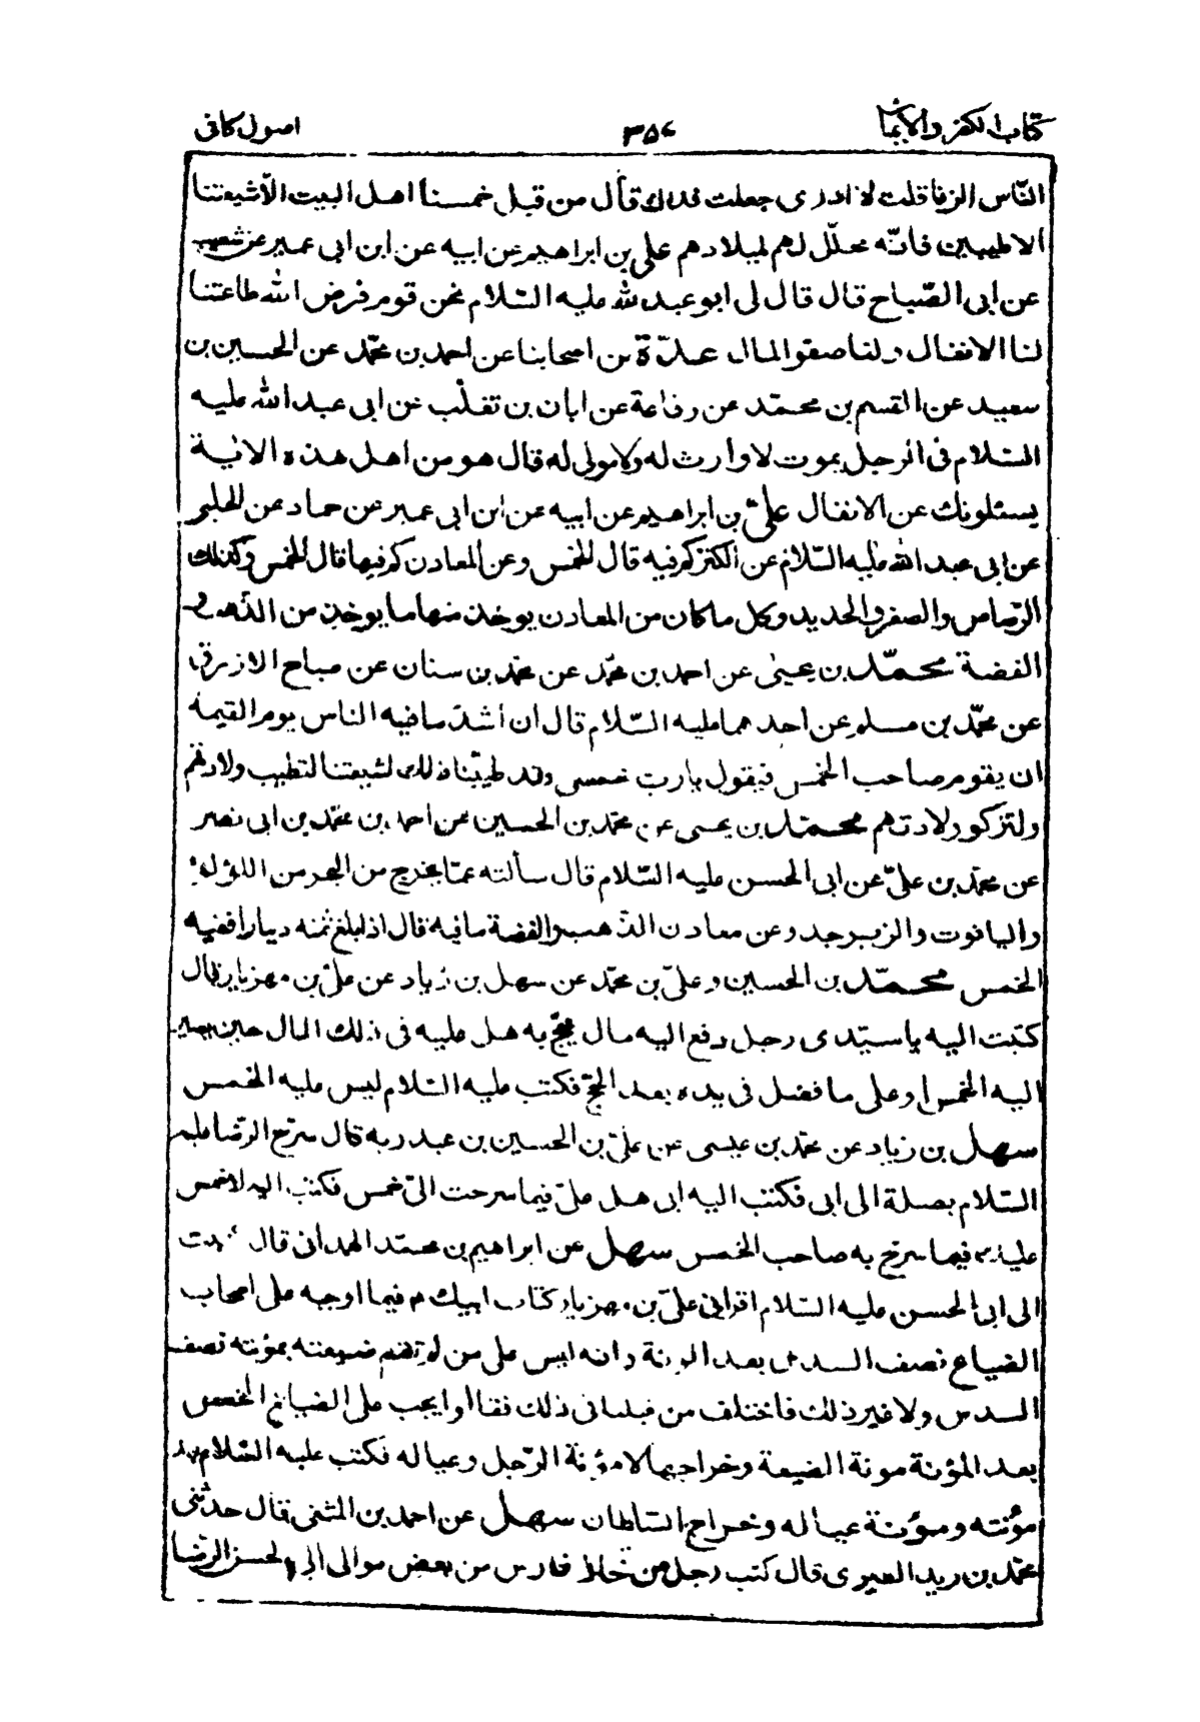 كتاب الكفر والايمان ٣٥٤ اصول كافى
النّاس الزنا قلت لا ادرى جعلت فداك قال من قبل خمسنا اهل البيت الّا شيعتنا
الاطيبين فانّه محلّل لهم لميلادهم على بن ابراهيم عن ابيه عن ابن ابى عمير عن شعيب
عن ابى الصّباح قال قال لى ابو عبد لله عليه السّلام نحن قوم فرض الله طاعتنا
لنا الانفال ولنا صفو المال عدّة من اصحابنا عن احمد بن محمّد عن الحسين بن
سعيد عن القسم بن محمّد عن رفاعة عن ابان بن تغلب عن ابى عبد الله عليه
السّلام فى الرجل يموت لا وارث له ولا مولى له قال هو من اهل هذه الاية
يسئلونك عن الانفال علىّ بن ابراهيم عن ابيه عن ابن ابى عمير عن حماد عن الحلبى
عن ابى عبد الله عليه السّلام عن الكنز كم فيه قال الخمس وعن المعادن كم فيها قال الخمس وكذلك
الرّصاص والصفر والحديد وكل ما كان من المعادن يوخذ منها ما يوخذ من الذّهب و
الفضة محمّد بن يحيى عن احمد بن محمّد عن محمّد بن سنان عن صباح الازرق
عن محمّد بن مسلم عن احدهما عليه السّلام قال ان اشدّ ما فيه الناس يوم القيمة
ان يقوم صاحب الخمس فيقول يا ربّ خمسى وقد طيّبنا ذلك لشيعتنا لتطيب ولادتهم
ولتزكو ولادتهم محمّد بن يحيى عن محمّد بن الحسين عن احمد بن محمّد بن ابى نصر
عن محمّد بن علىّ عن ابى الحسن عليه السّلام قال سألته عمّا يخرج من البحر من اللؤلؤ
والياقوت والزبرجد وعن معادن الذّهب والفضة ما فيه قال اذا بلغ ثمنه دينارا ففيه
الخمس محمّد بن الحسين وعلىّ بن محمّد عن سهل بن زياد عن علىّ بن مهزيار قال
كتبت اليه يا سيّدى رجل دفع اليه مال يحجّ به هل عليه فى ذلك المال حين يصير
اليه الخمس او على ما فضل فى يده بعد الحجّ فكتب عليه السّلام ليس عليه الخمس
سهل بن زياد عن محمّد بن عيسى عن علىّ بن الحسين بن عبد ربه قال سرّح الرّضا عليه
السّلام بصلة الى ابى فكتب اليه ابى هل علىّ فيما سرحت الىّ خمس فكتب اليه لا خمس
عليك فيما سرّح به صاحب الخمس سهل عن ابراهيم بن محمّد الهمدانى قال كتبت
الى ابى الحسن عليه السّلام اقرانى علىّ بن مهزيار كتاب ابيك ع فيما اوجبه على اصحاب
الضياع نصف السدس بعد المؤنة وانه ليس على من لم تقم ضيعته بمؤنته نصف
السدس ولا غير ذلك فاختلف من قبلنا فى ذلك فقالوا يجب على الضياع الخمس
بعد المؤنة مونة الضيعة وخراجها لا مؤنة الرّجل وعياله فكتب عليه السّلام بعد
مؤنته ومؤنة عياله وخراج السّلطان سهل عن احمد بن المثنى قال حدثنى
محمّد بن زيد الطبرى قال كتب رجل من تجار فارس من بعض موالى ابى الحسن الرّضا